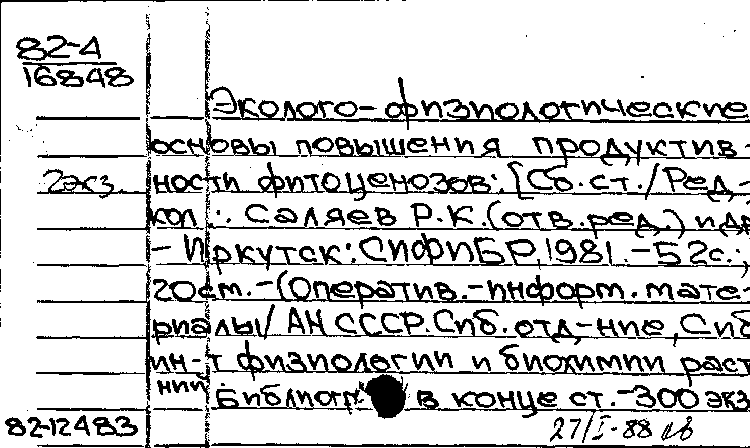 82-4
16848
Эколого-физиологические
основы повышения продуктив-
2экз. ности фитоценозов: [Сб.ст./Ред-
кол.: Саляев Р.К.(отв.ред.) и др
- Иркутск: СИФИБР, 1981.-52с.;
20см.-(Оператив.-информ.мате-
риалы/ АН СССР.Сиб.отд-ние, Сиб
ин-т физиологии и биохимии раст
ний
Библиогр. в конце ст.-300 экз
82-12483
27/I-88